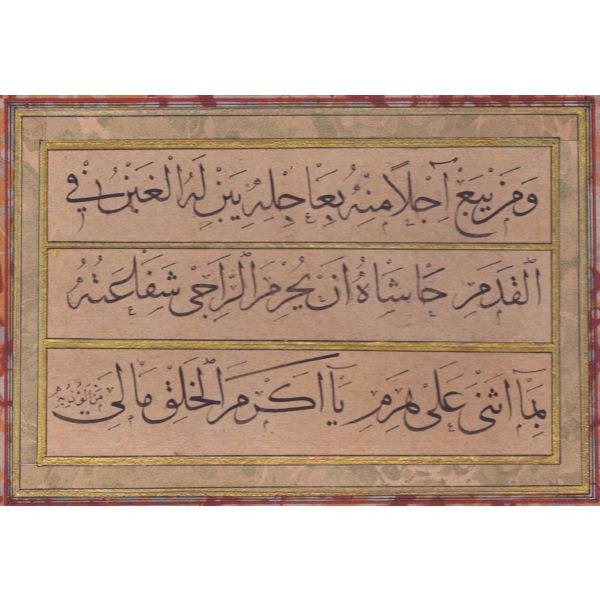 وَمَنْ يَبِعْ آجِلًا مِنْهُ بِعَاجِلِهِ يَبِنْ لَهُ الْغَبْنُ فِي
الْقَدَمِ حَاشَاهُ اَنْ يُحْرِمَ الرَّاجِى شَفَاعَتُهُ
بِمَا اَثْنَى عَلَى هَرِمِ يَا اَكْرَمَ الْخَلْقِ مَالِي مَنْ اَلُوذُ بِهِ